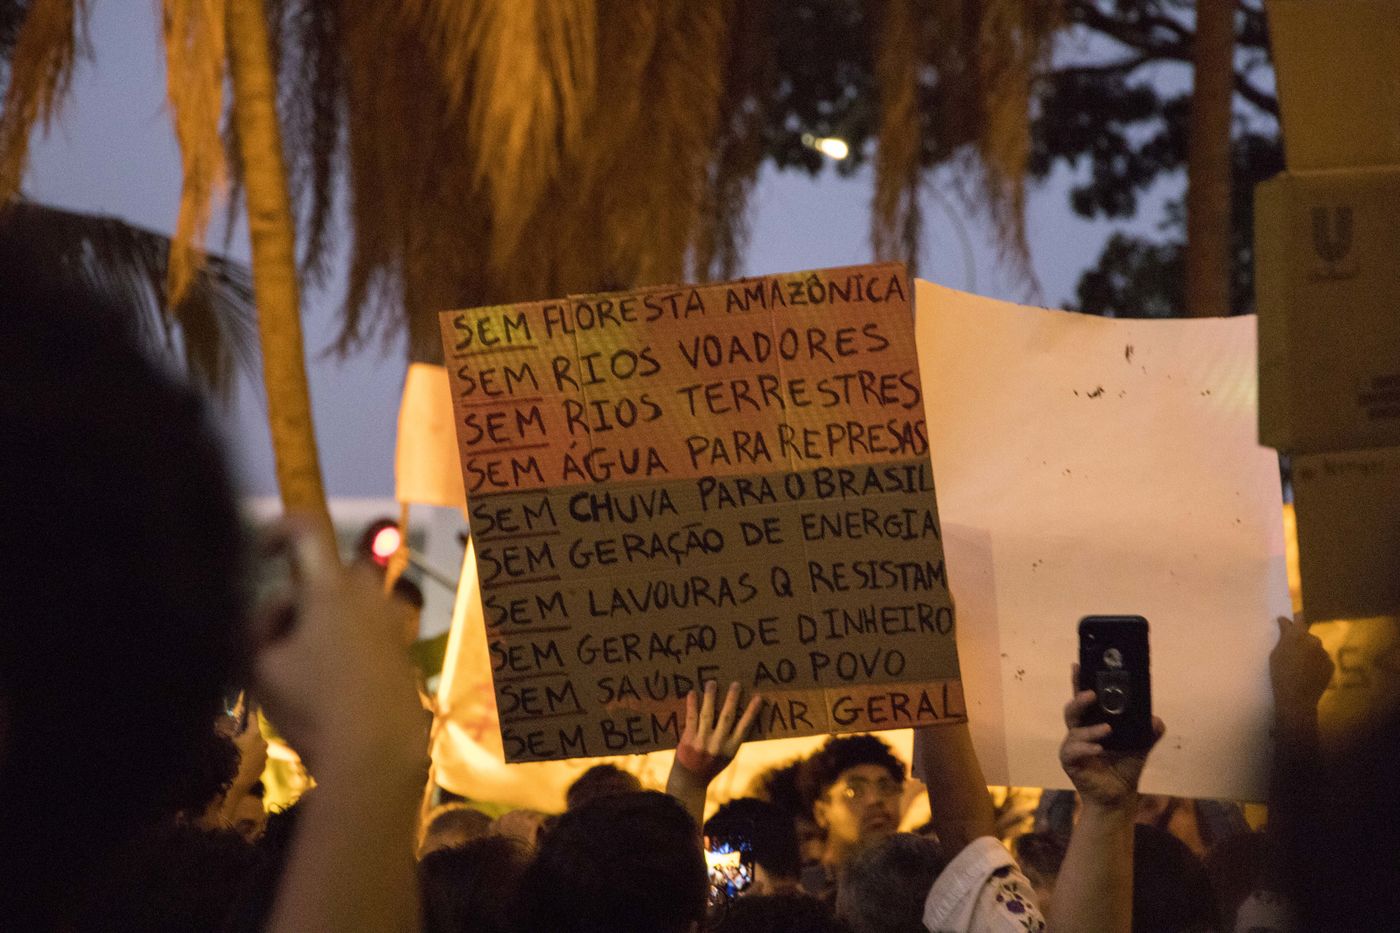 SEM FLORESTA AMAZÔNICA
SEM RIOS VOADORES
SEM RIOS TERRESTRES
SEM ÁGUA PARA REPRESAS
SEM CHUVA PARA O BRASIL
SEM GERAÇÃO DE ENERGIA
SEM LAVOURAS Q RESISTAM
SEM GERAÇÃO DE DINHEIRO
SEM SAÚDE AO POVO
SEM BEM GERAL